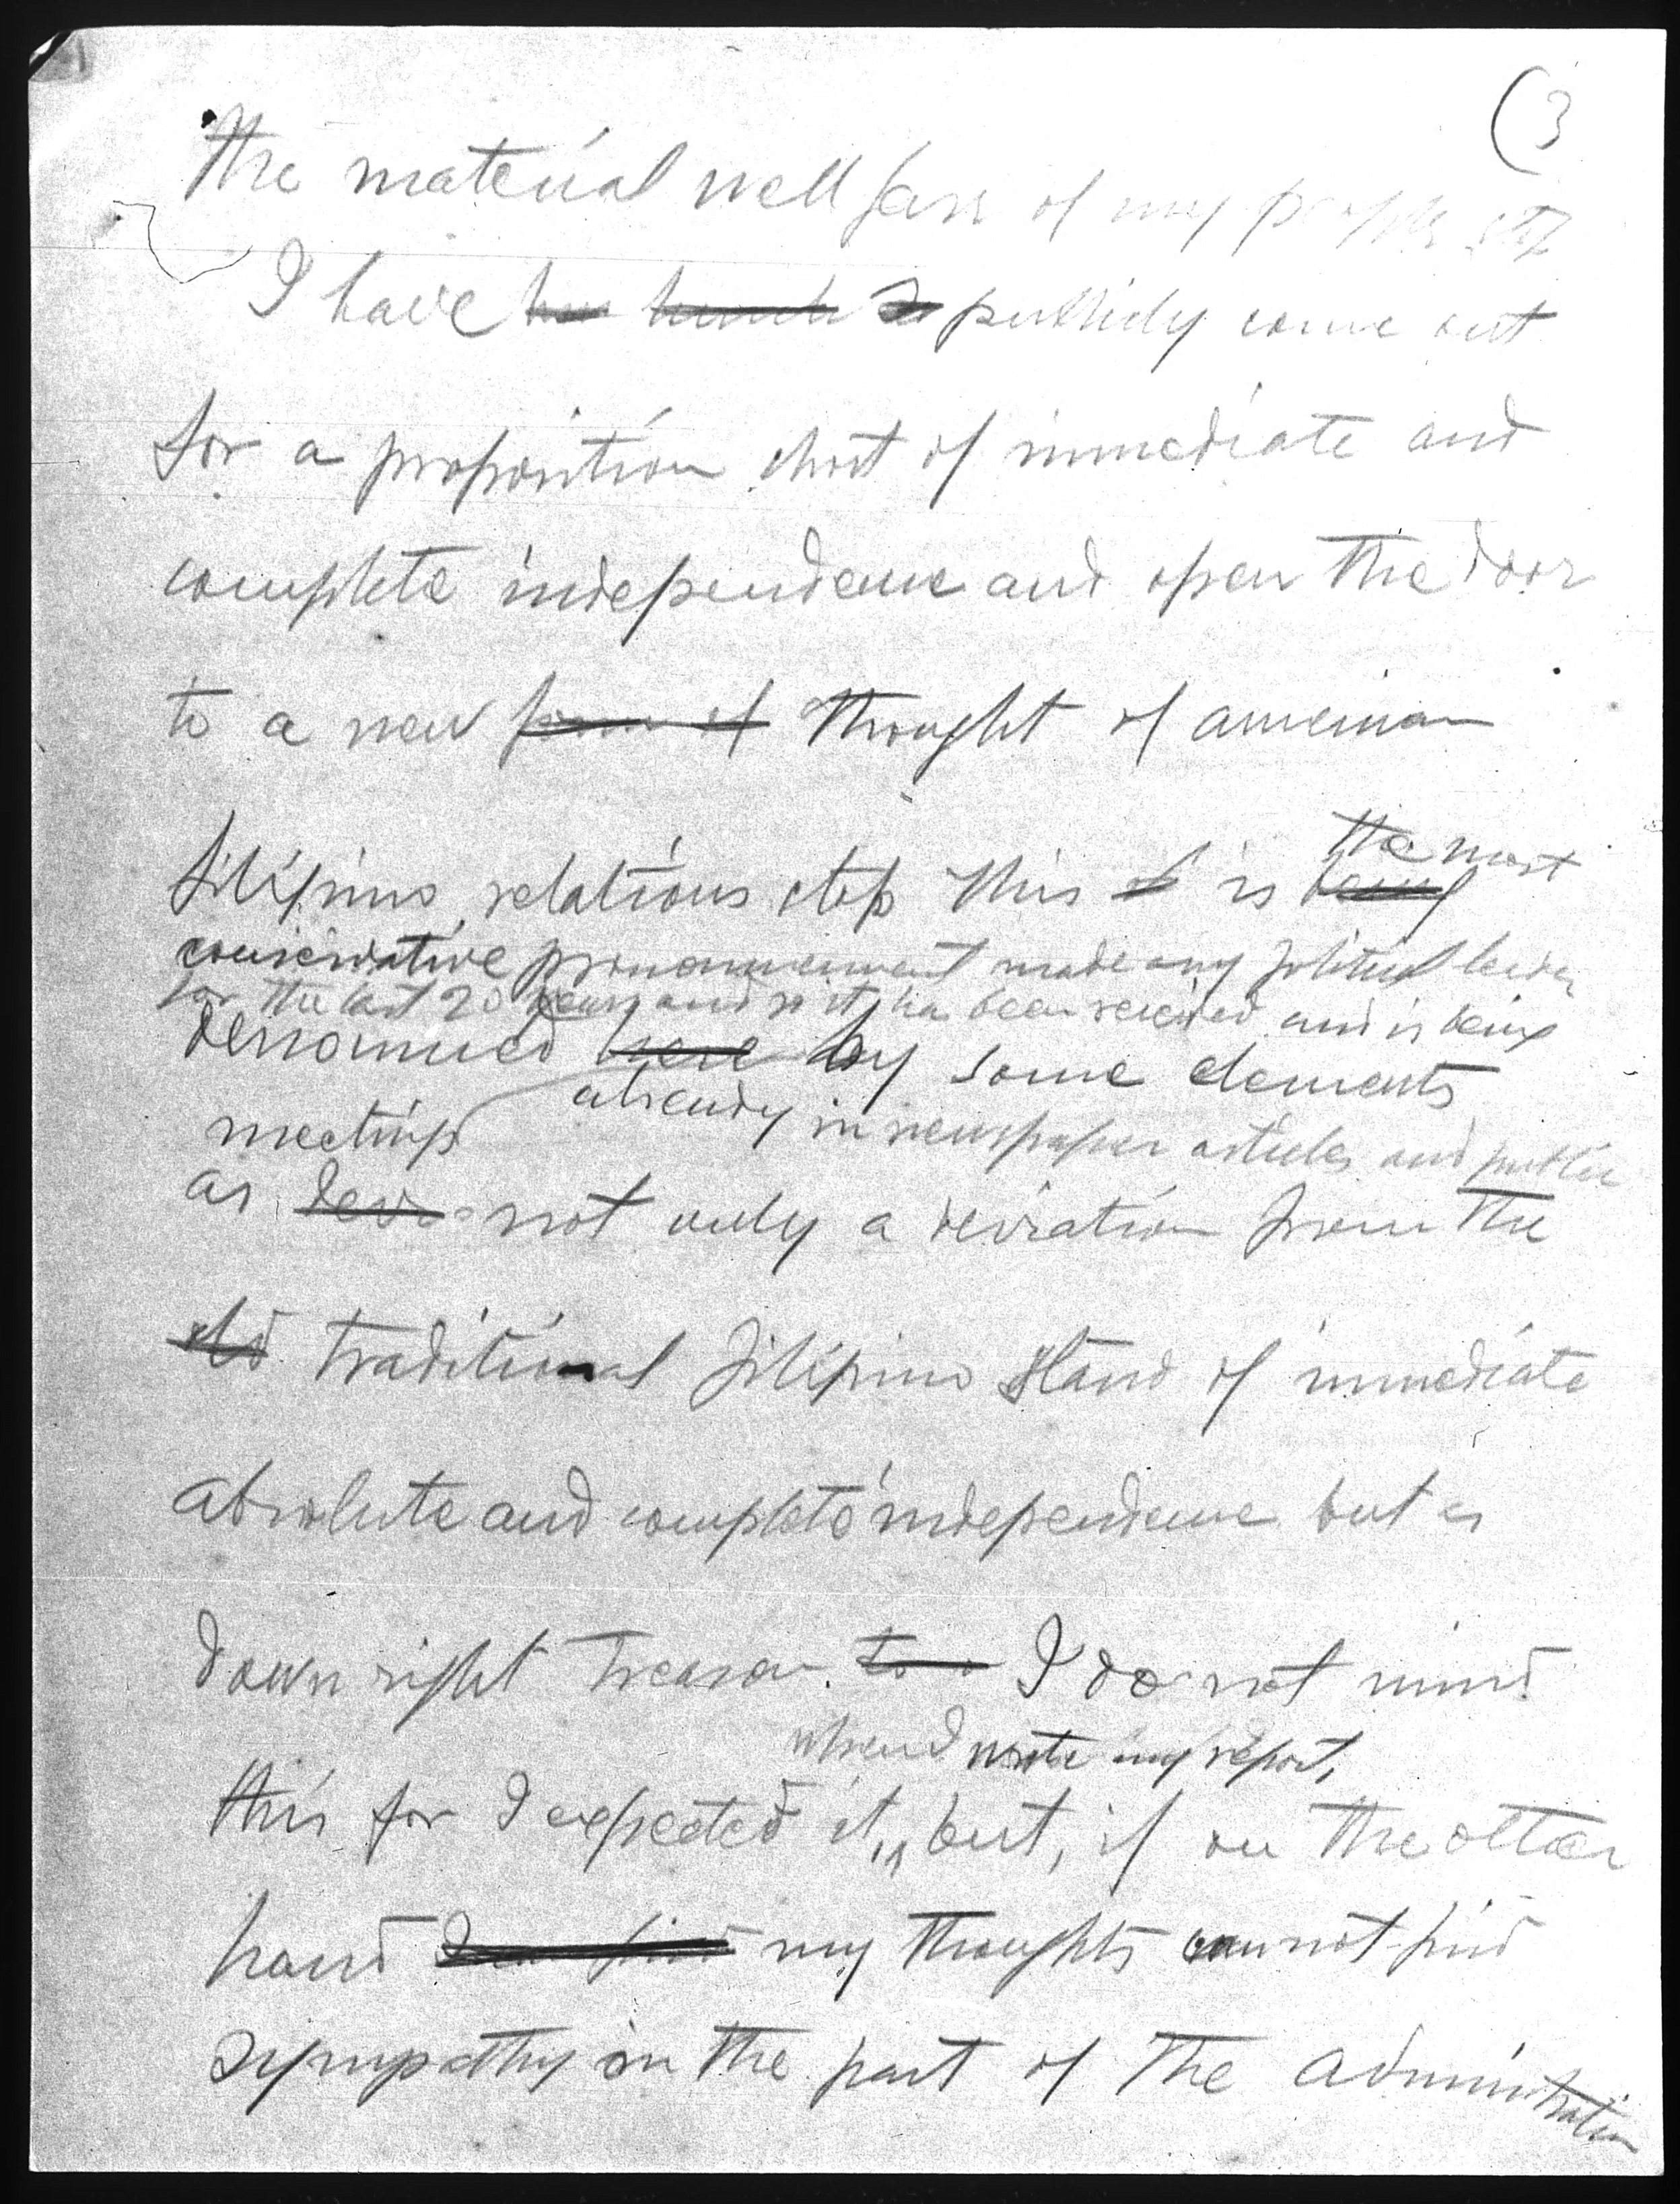 (3
The material well fare of my people stop
I have publicly come out
for a proposition short of immediate and
complete independence and open the door
to a new form of thought of american
filipino relations stop This is being the most
conservative pronouncement made any political leader
for the last 20 years and so it has been received and is being
denounced here by some elements
already in newspaper articles and public
meetings
as devi not only a deviation from the
old traditional filipino stand of immediate
absolute and complete independence but as
down right treason. to I do not mind
when I wrote my report,
this for I expected it, but, if on the other
hand my thoughts cannot find
sympathy on the part of the administration